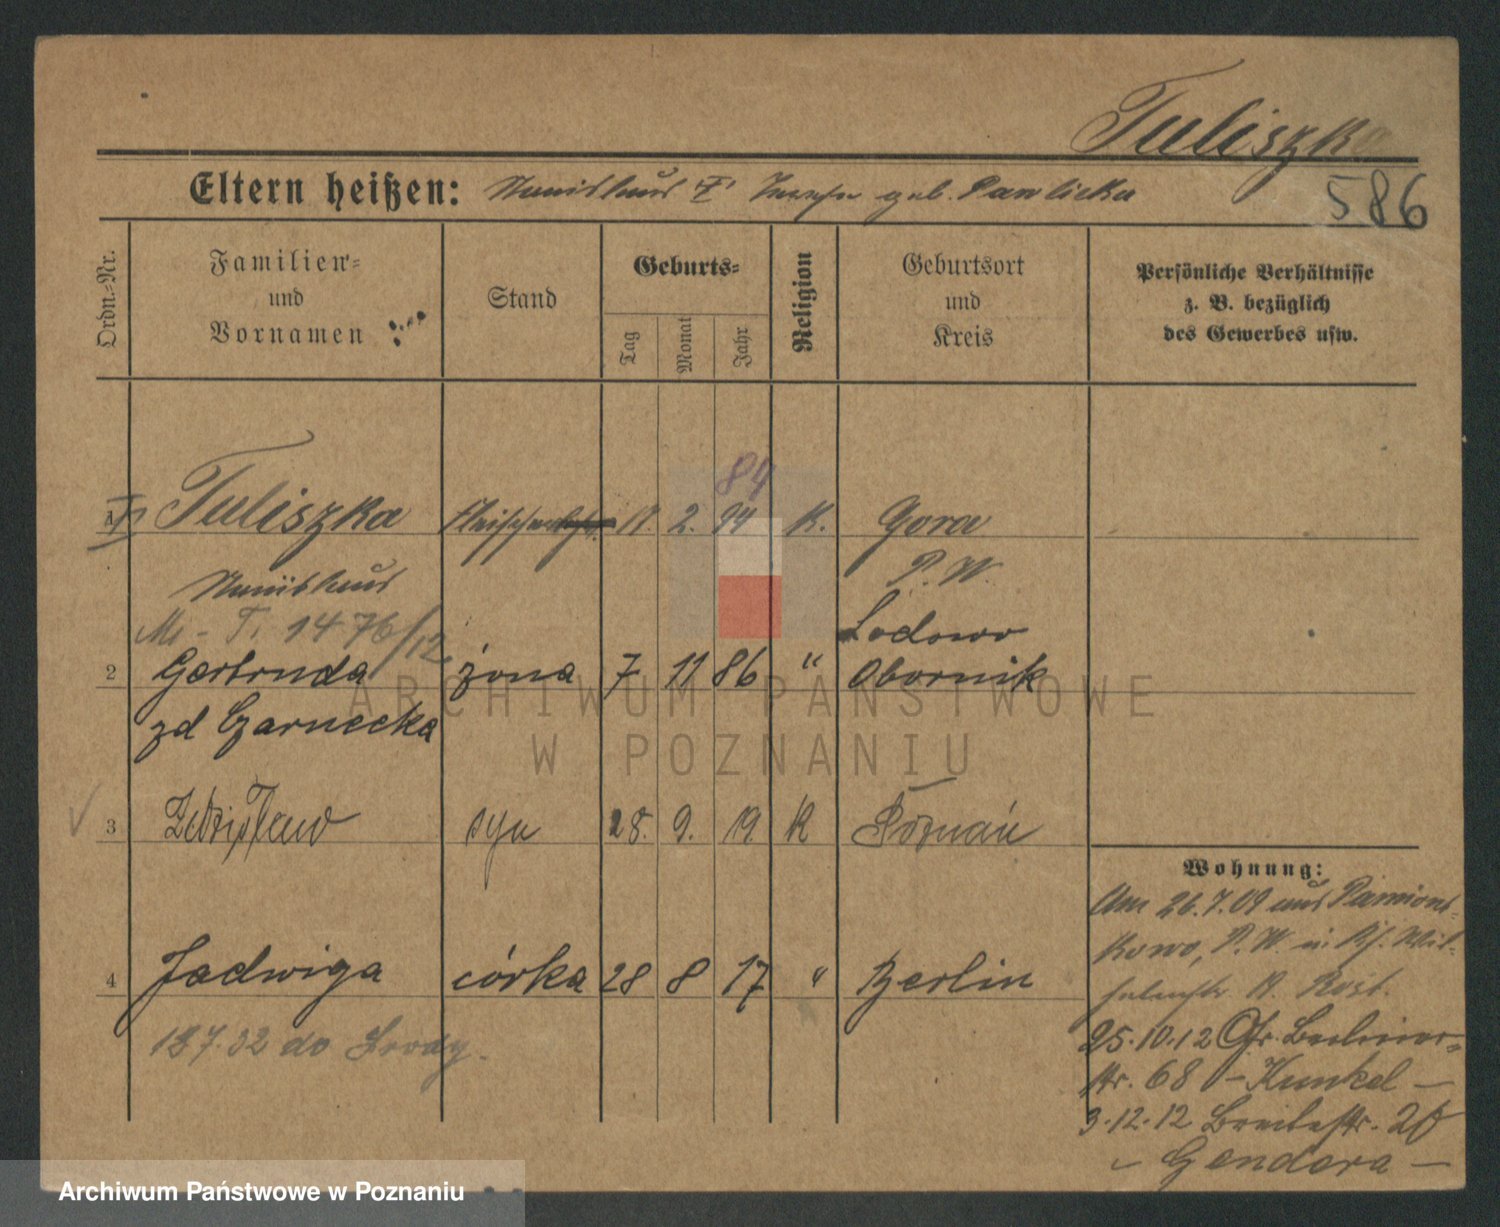 Tuliszka
Eltern heißen: Stanislaus T. geb. Pawlicka
586
Ordn.-Nr.
Familien=
und
Vornamen
Stand
Geburts=
Tag
Monat
Jahr
Religion
Geburtsort
und
Kreis
Persönliche Verhältnisse
z. B. bezüglich
des Gewerbes usw.
84
1 Tuliszka 2. K. Gora
Stanislaus P. W.
M. - T. 1476/12 Lodowo
2 Gertruda żona 7 11 86 " Obornik
zd Czarnecka
3 Zdzisław syn 28. 9. 19. K Poznań
4 Jadwiga córka 28 8 17 " Berlin
18 7.32 do Środy.
Wohnung:
Am 26.7.09 aus
kowo, P. W. in
25.10.12 Gr. Berliner-
str. 68 - Kunkel -
3.12.12 Breitestr. 20
- Gendera -
ARCHIWUM PAŃSTWOWE
W POZNANIU
Archiwum Państwowe w Poznaniu